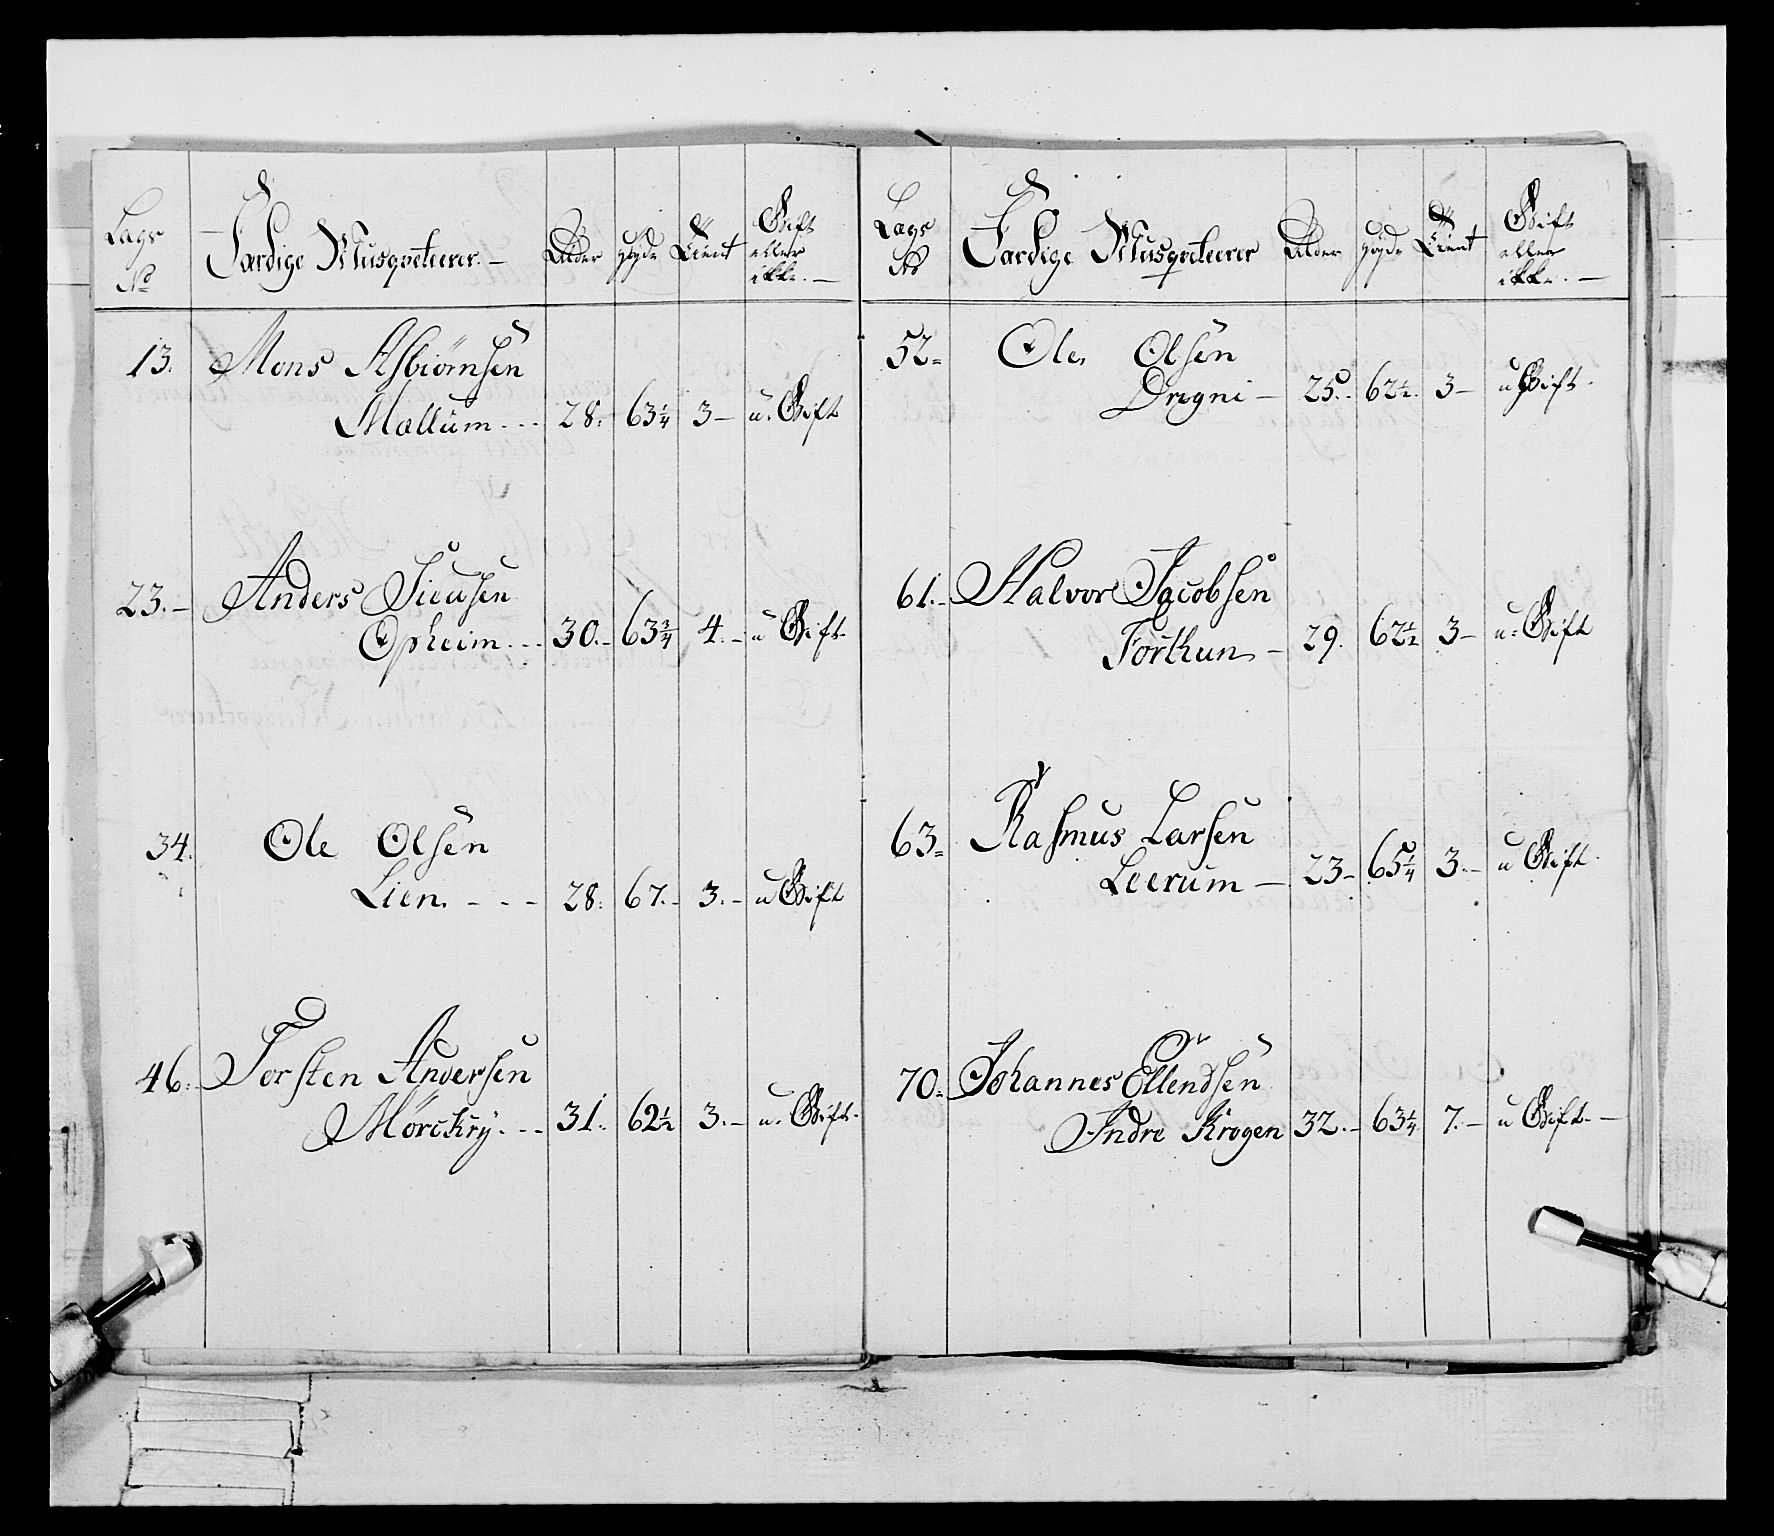 Lags No Færdige Musqveteerer.— Alder Høyde Tient Gift eller ikke.—
13. Mons Asbiørnsen
Mællum... 28. 63¼ 3— u. Gift
23.— Anders Siensen
Opheim... 30.— 63¾ 4.— u Gift
34. Ole Olsen
Lien. - - - 28. 67.— 3.— u Gift
46. Torsten Andersen
Mørckrÿ... 31. 62½ 3.— u. Gift.
Lags No Færdige Musqveteerer Alder Høyde Tient Gift eller ikke.—
52= Ole Olsen
Dregni— 25. 62½. 3— u Gift.
61.— Halvor Jacobsen
Forthun— 29. 62½ 3— u. Gift
63= Rasmus Larsen
Leerum— 23— 65¼ 3.— u Gift.
70= Johannes Ellendsen
Indre Krogen 32.— 63¼ 7.— u Gift.—